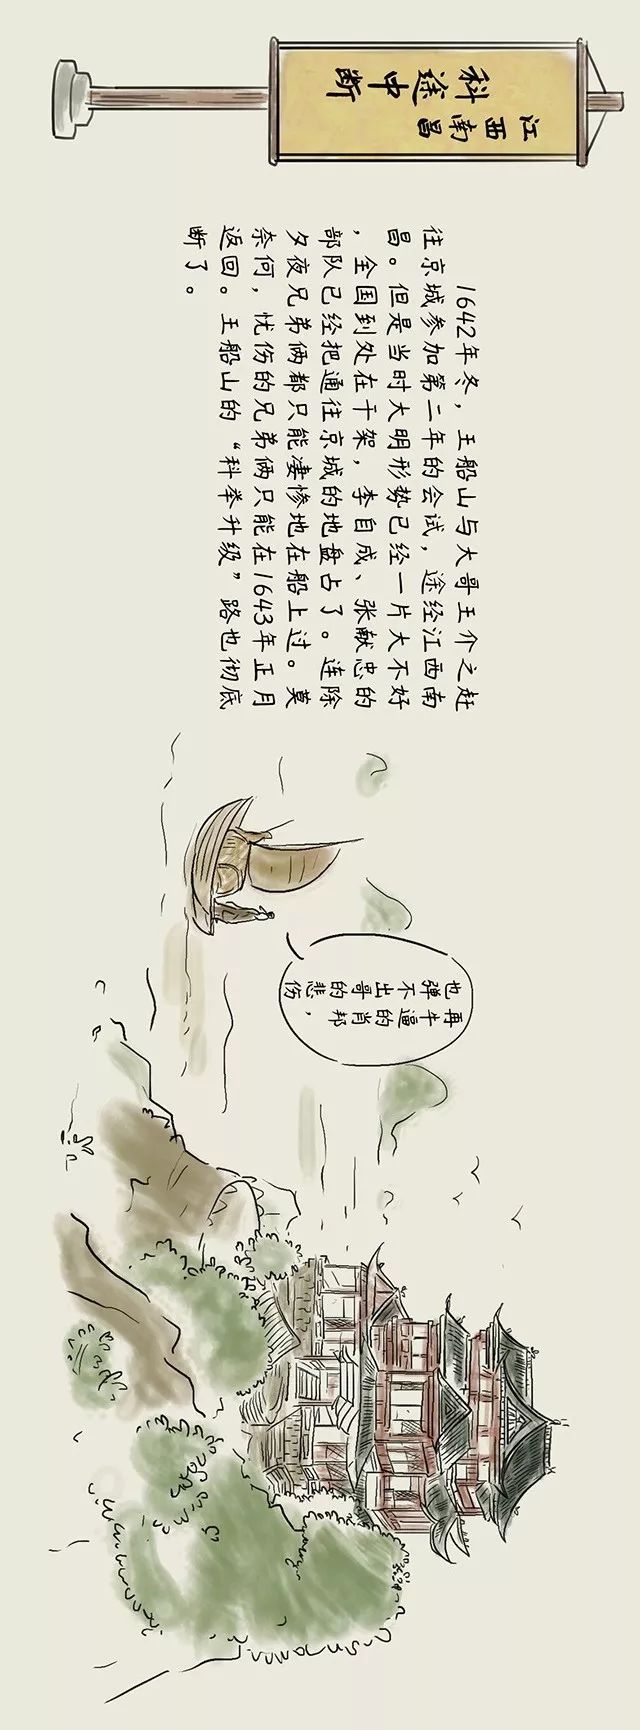 江西南昌
科途中断
1642年冬，王船山与大哥王介之赶
往京城参加第二年的会试，途经江西南
昌。但是当时大明形势已经一片大不好
，全国到处在干架，李自成、张献忠的
部队已经把通往京城的地盘占了。连除
夕夜兄弟俩都只能凄惨地在船上过。莫
奈何，忧伤的兄弟俩只能在1643年正月
返回。王船山的“科举升级”路也彻底
断了。
再牛逼的肖邦，
也弹不出哥的悲伤